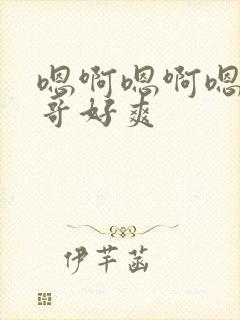 嗯啊嗯啊嗯
哥好爽
伊芊菡